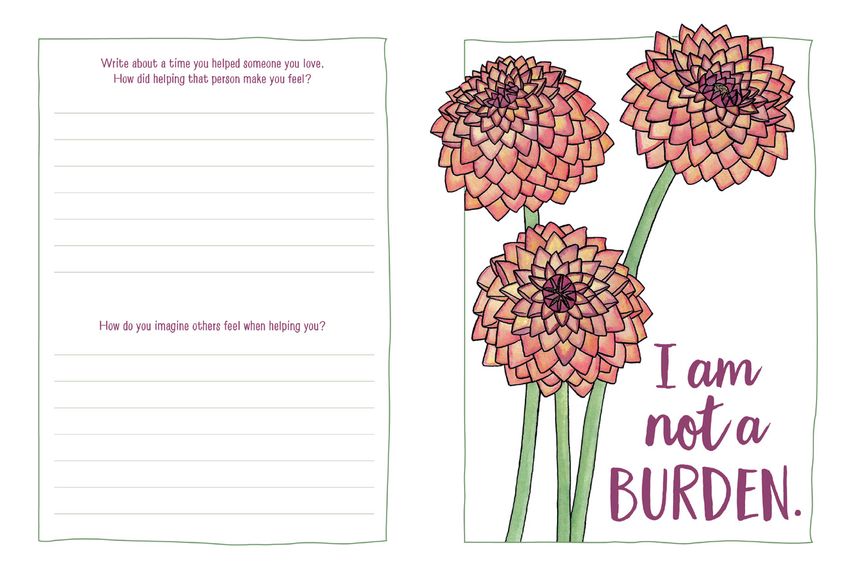 Write about a time you helped someone you love.
How did helping that person make you feel?
How do you imagine others feel when helping you?
I am
not a
BURDEN.